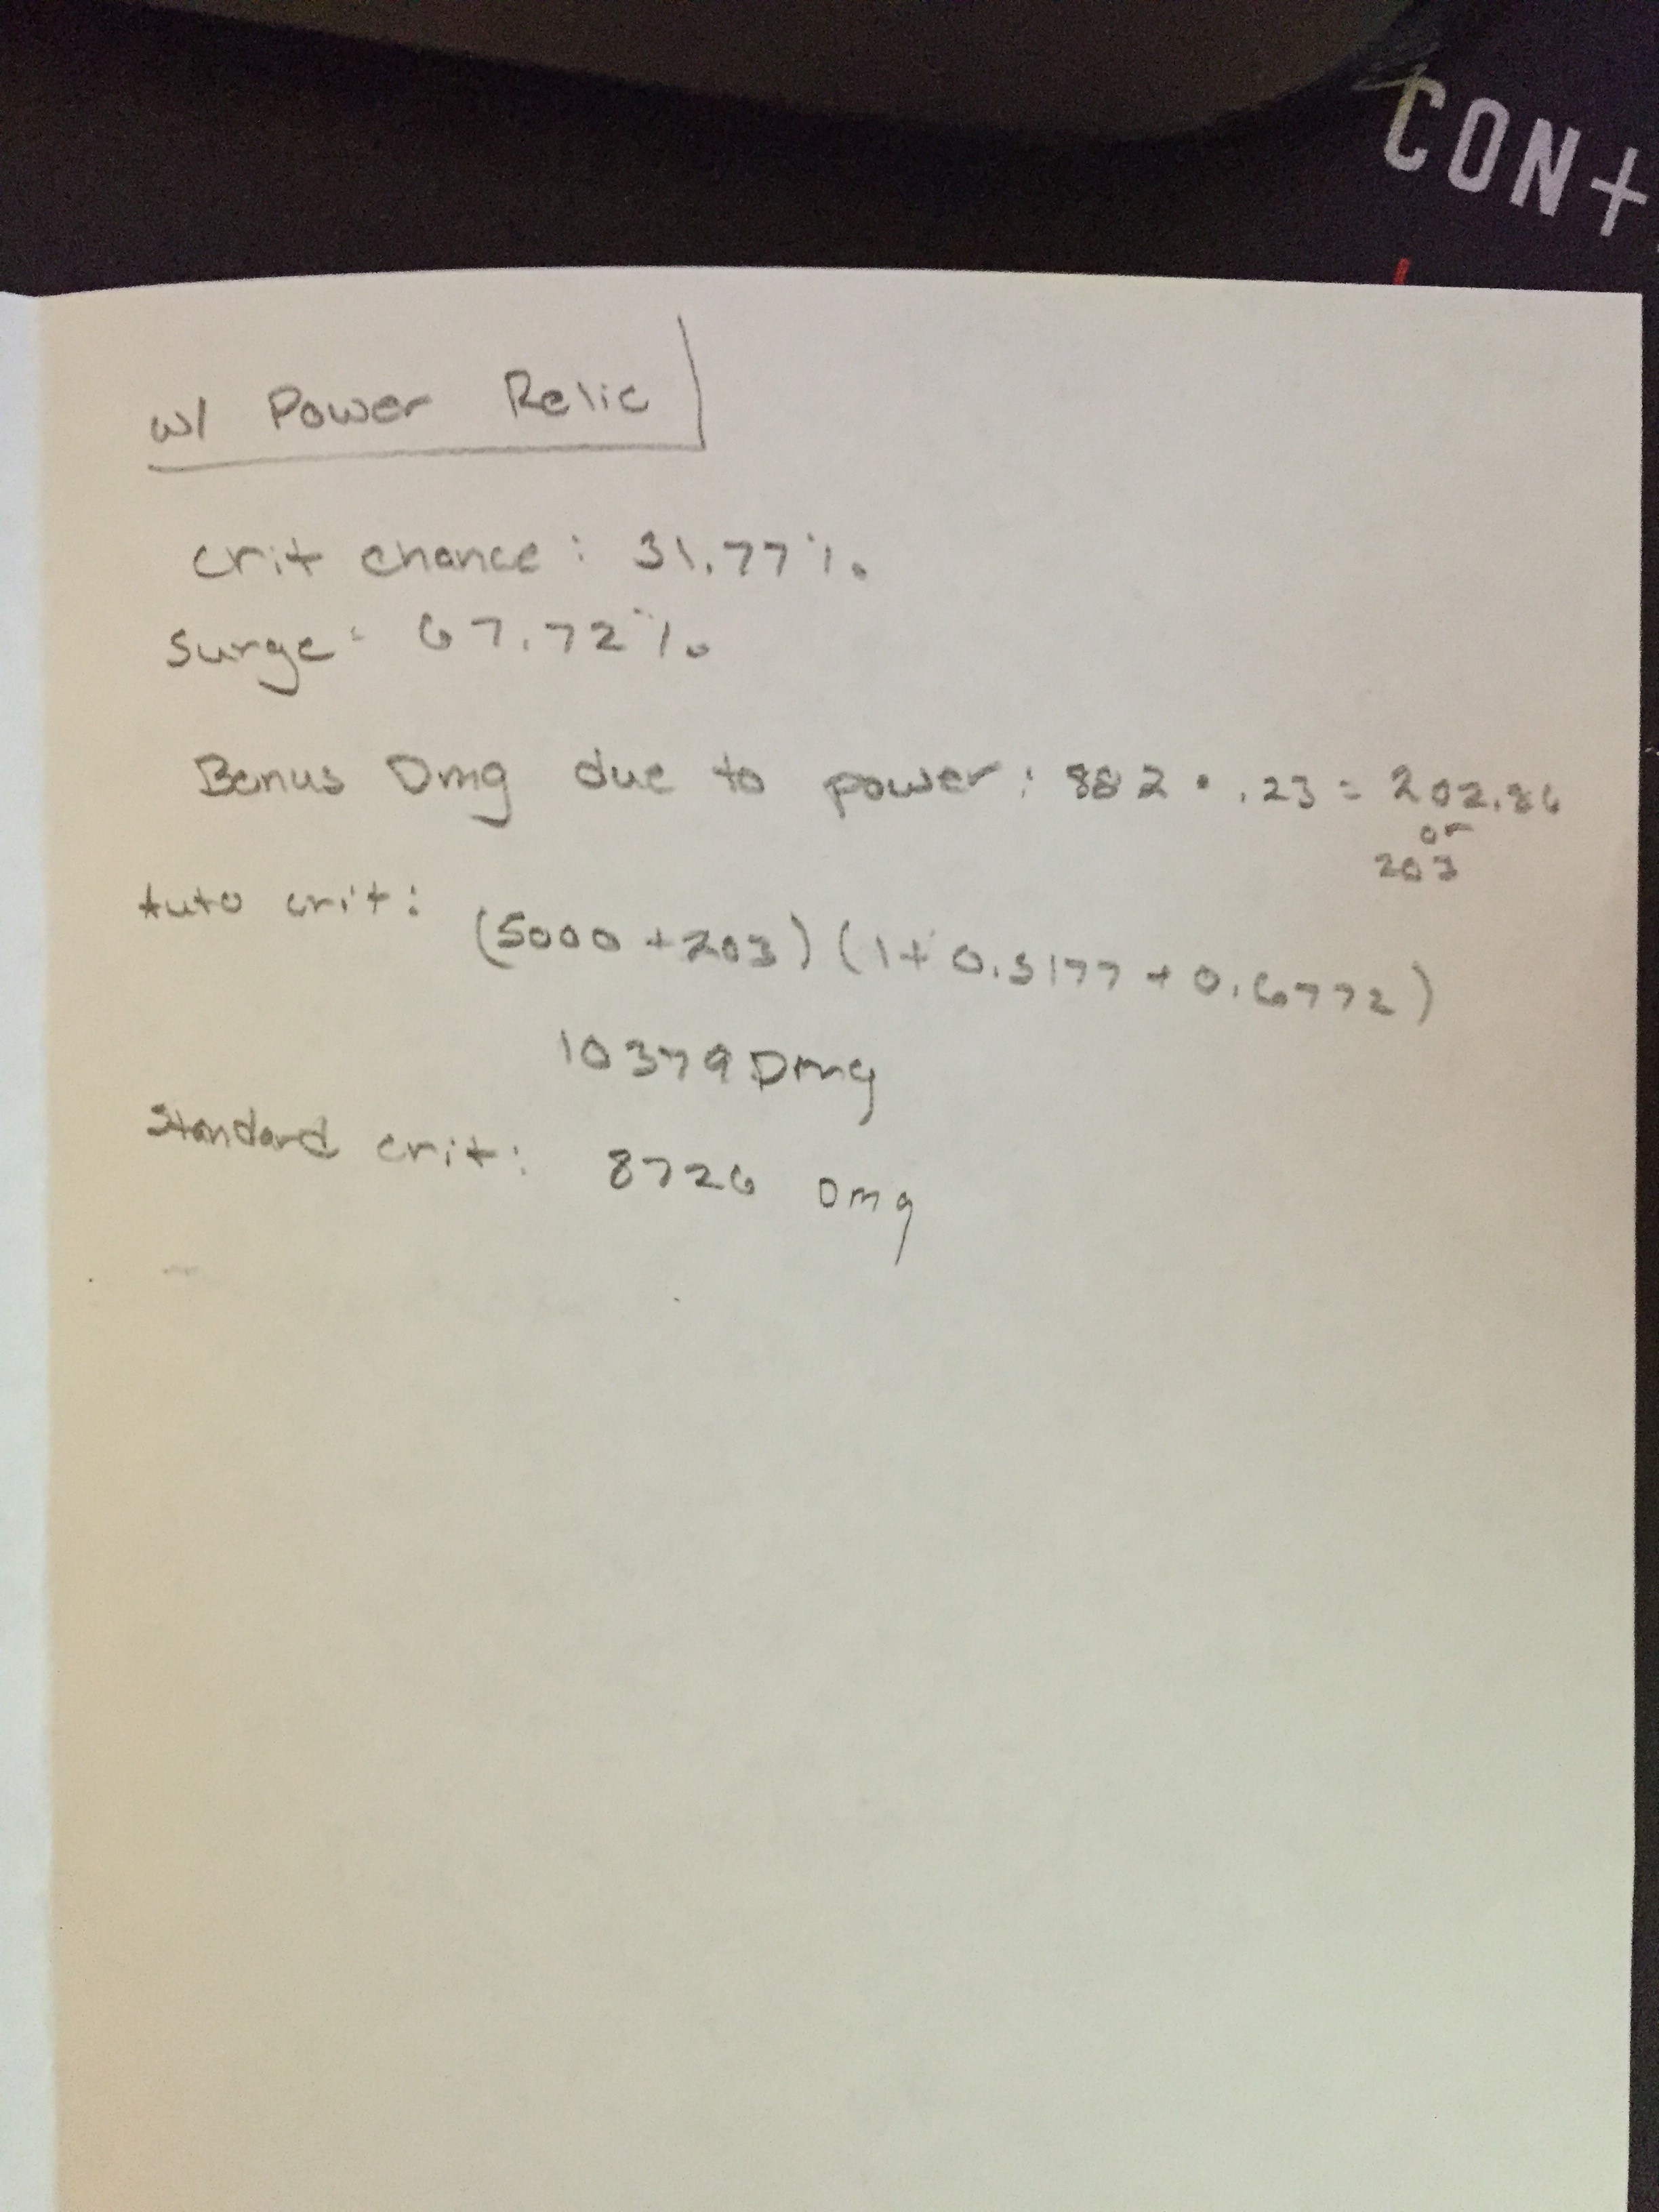 CONT
w/ Power Relic
crit chance: 31.77%
Surge: 67.72%
Bonus Dmg due to power: 882 • .23 = 202.86
or
203
Auto crit:
(5000 + 203) (1 + 0.3177 + 0.6772)
10379 Dmg
Standard crit: 8726 Dmg